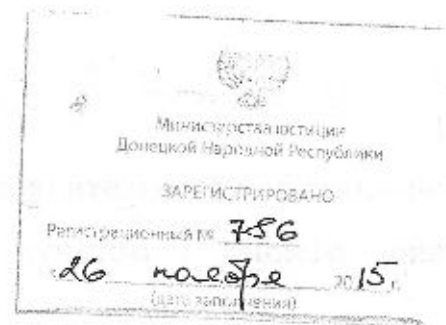 Министерства юстиции
Донецкой Народной Республики
ЗАРЕГИСТРИРОВАНО
Регистрационный № 756
«26 ноября 2015 г.
(дата заполнения)